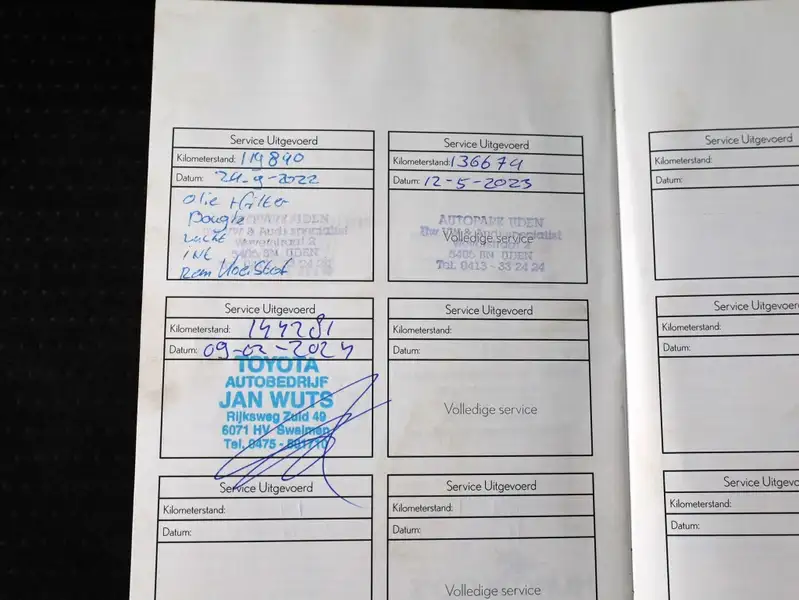 Service Uitgevoerd
Kilometerstand: 119840
Datum: 24-9-2022
olie + filter
Bougie
Lucht
int
Rem vloeistof
AUTOPARK UDEN
Uw VW & Audi specialist
5405 BN UDEN
Service Uitgevoerd
Kilometerstand: 136674
Datum: 12-5-2023
AUTOPARK UDEN
Uw VW & Audi specialist
Volledige service
5405 BN UDEN
Tel. 0413 - 33 24 24
Service Uitgevoerd
Kilometerstand:
Datum:
Service Uitgevoerd
Kilometerstand: 144281
Datum: 09-02-2024
TOYOTA
AUTOBEDRIJF
JAN WUTS
Rijksweg Zuid 49
6071 HV Swalmen
Tel. 0475 -
Service Uitgevoerd
Kilometerstand:
Datum:
Volledige service
Service Uitgevoerd
Kilometerstand:
Datum:
Service Uitgevoerd
Kilometerstand:
Datum:
Service Uitgevoerd
Kilometerstand:
Datum:
Volledige service
Service Uitgevo
Kilometerstand:
Datum: